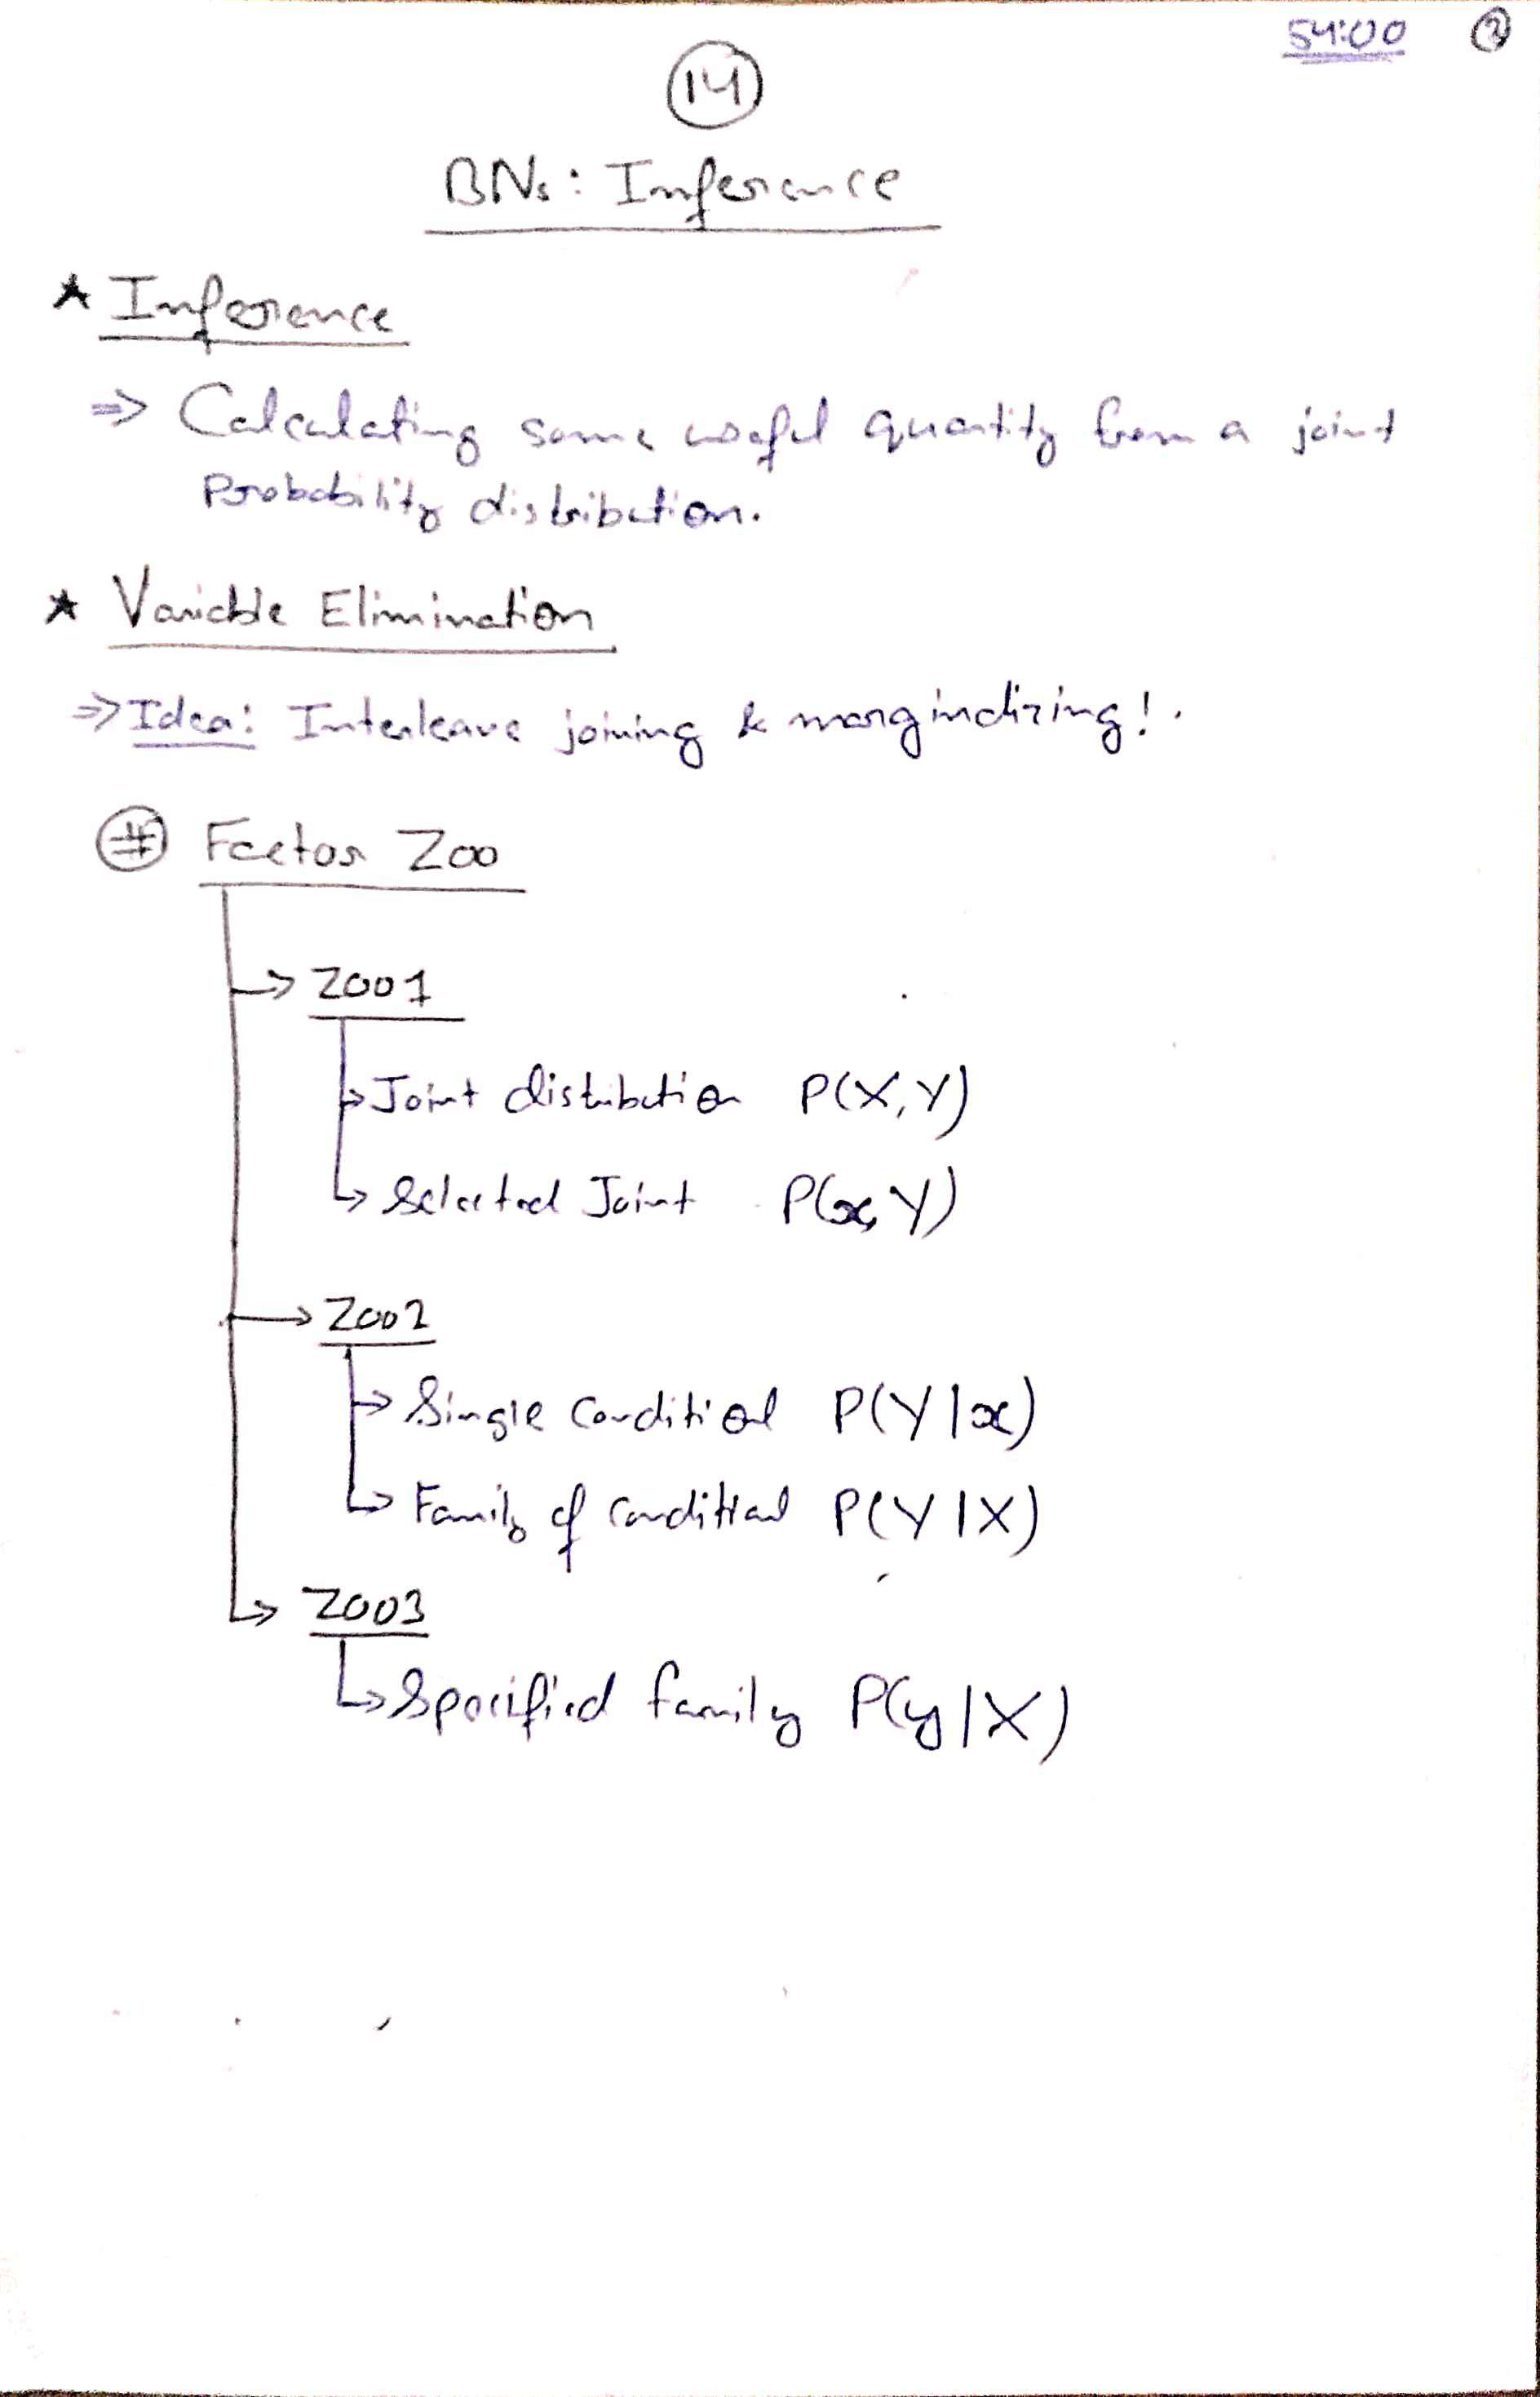 54:00
14
BNs: Inference
* Inference
=> Calculating some useful quantity from a joint
Probability distribution.
* Variable Elimination
=> Idea: Interleave joining & marginalizing!.
# Factor Zoo
-> Zoo1
-> Joint distribution P(X,Y)
-> Selected Joint P(x,Y)
-> Zoo2
-> Single Conditional P(Y|x)
-> Family of conditional P(Y|X)
-> Zoo3
-> Specified family P(y|X)